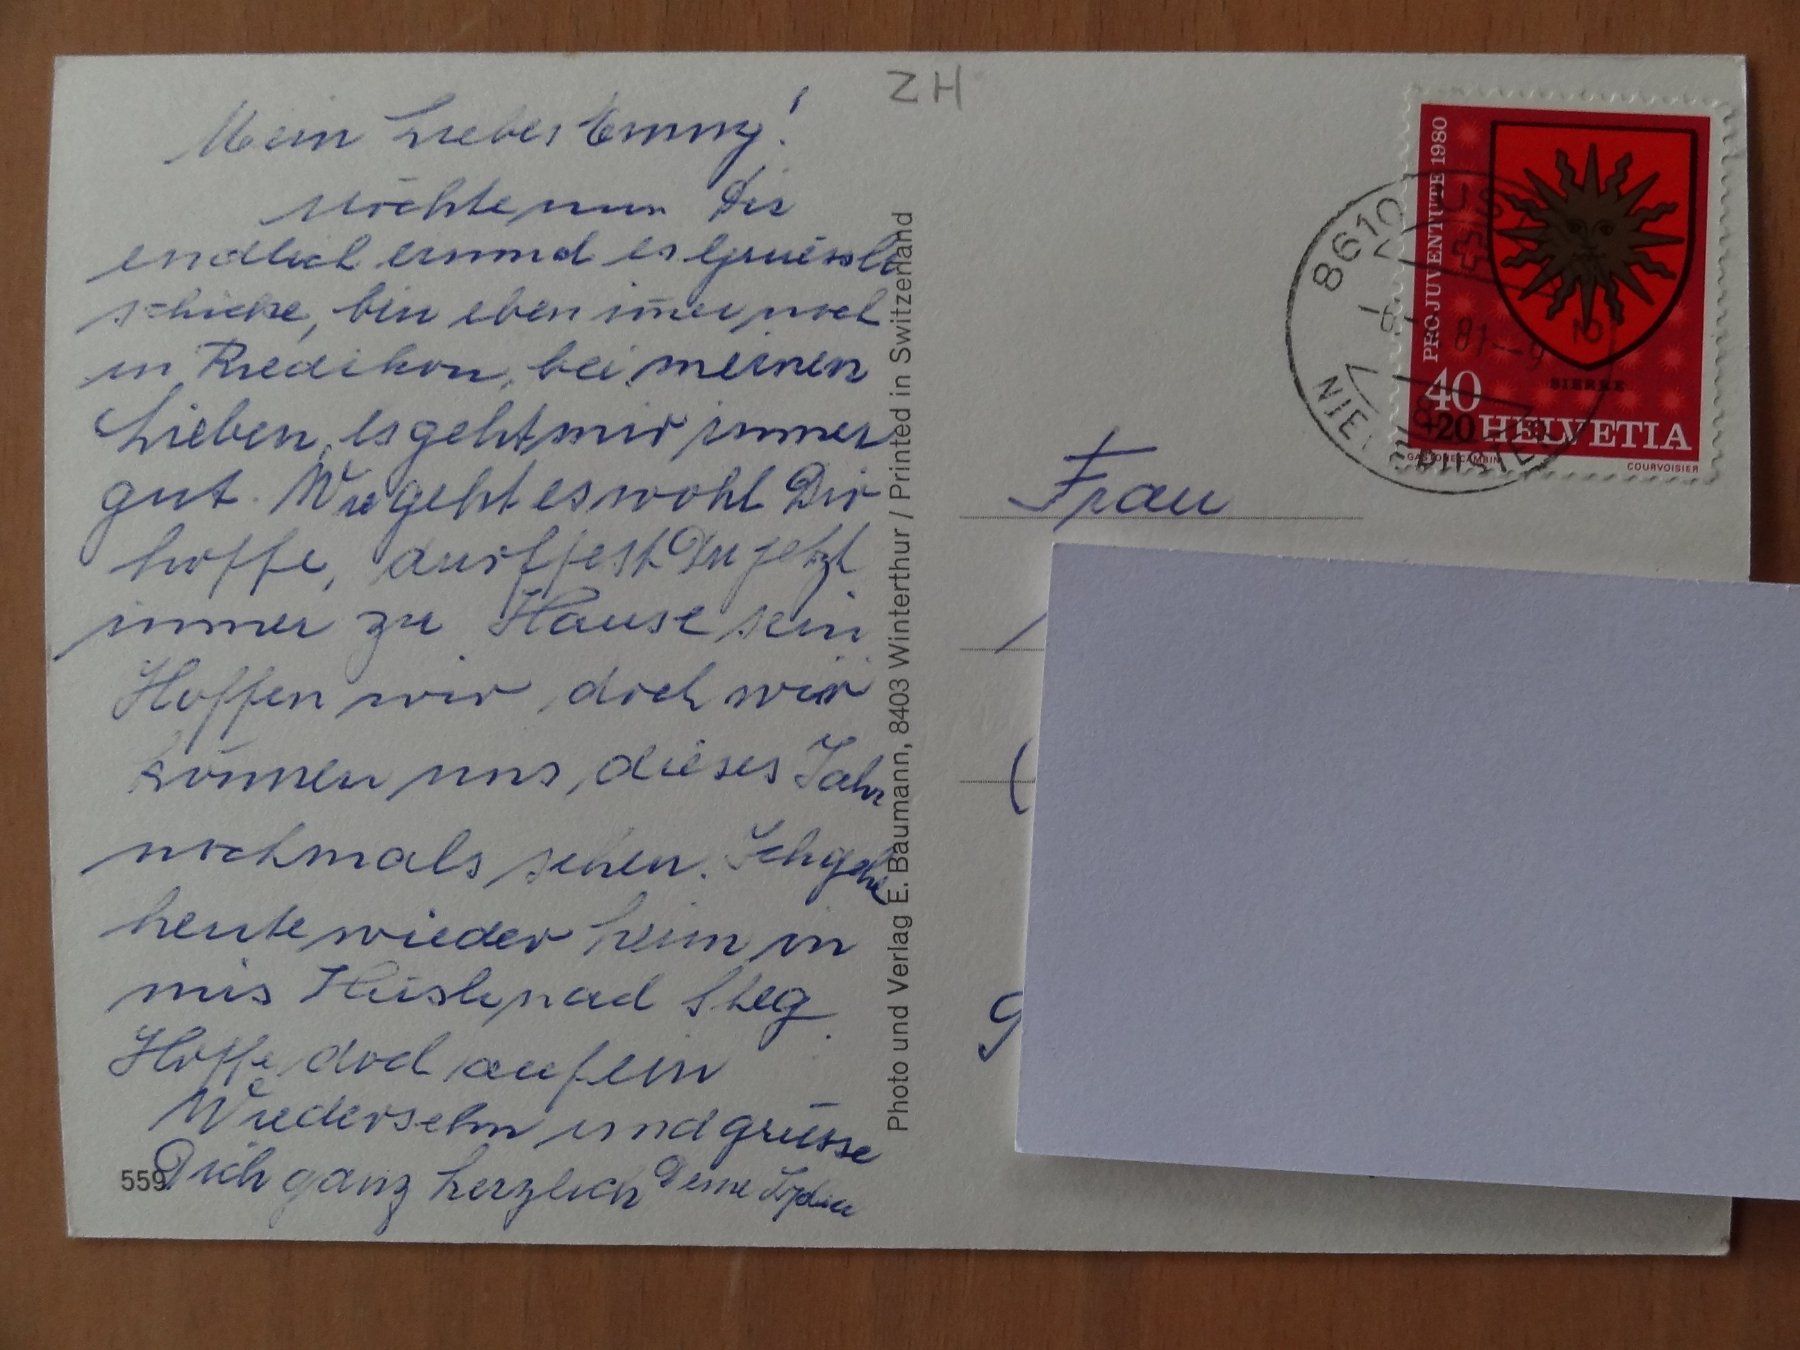 ZH
Mein Liebes Emmy!
möchte nun Dir
endlich einmal es Grüessli
schicke, bin eben immer noch
in Riedikon, bei meinen
Lieben, es geht mir immer
gut. Wie geht es wohl Dir
hoffe, darffest Du jetzt
immer zu Hause sein
Hoffen wir doch wir
können uns, dieses Jahr
nochmals sehen. Ich gehe
heute wieder heim in
mis Hüsli nach Steg
Hoffe doch auf ein
Wiedersehn und grüsse
Dich ganz herzlich Deine
559
Photo und Verlag E. Baumann, 8403 Winterthur / Printed in Switzerland
PRO JUVENTUTE 1980
BIERRE
40
+20 HELVETIA
COURVOISIER
8610 US
81-9
NIE
Frau